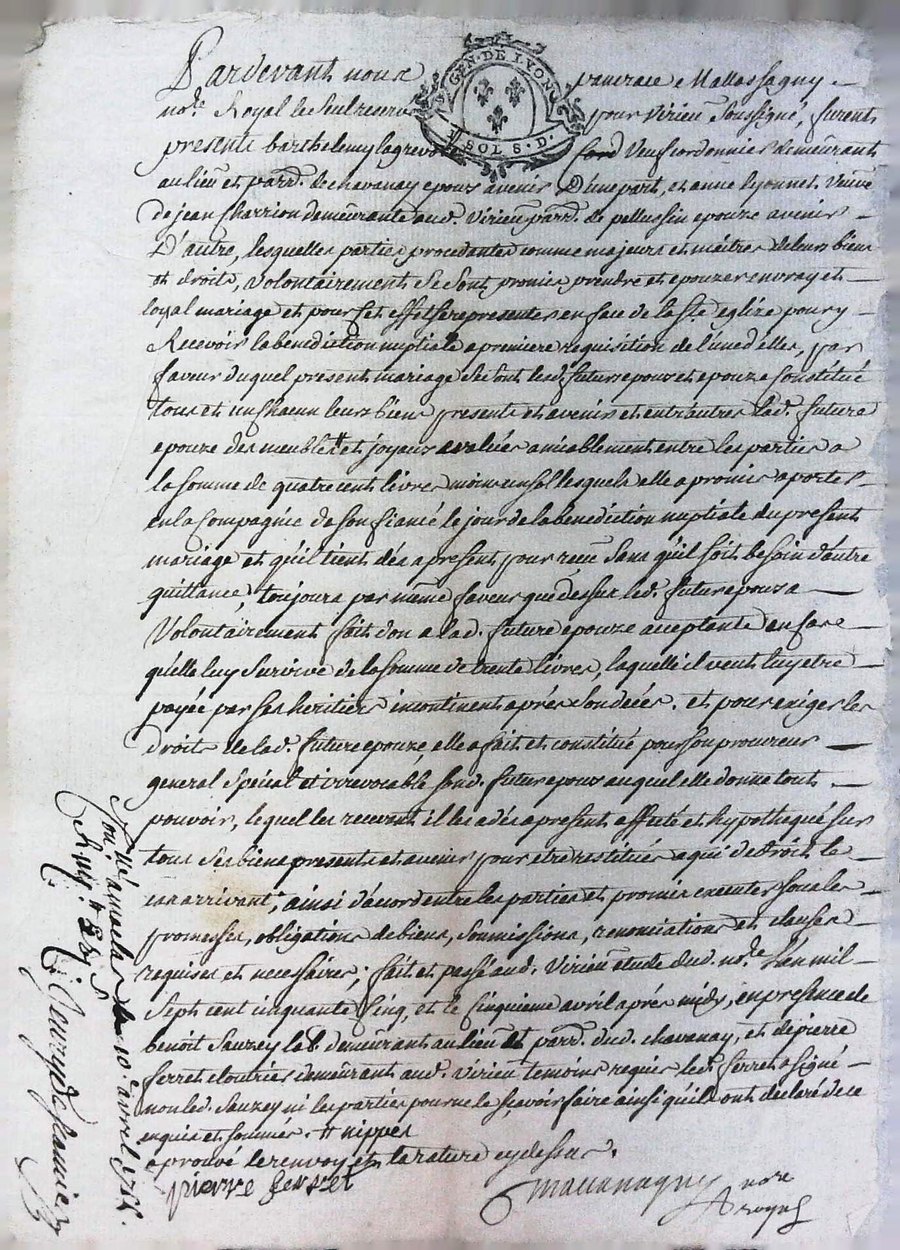 GEN. DE LYON
SOLS. D.
Pardevant nous venerace Mallassagny
no.re Royal le seul reservé pour Virieu soussigné, furent
presents barthelemy lagre fond veuf cordonnier demeurant
au lieu et parr. de chavanay epoux avenir D'une part, et anne lyonnet veuve
de jean Charrion demeurante aud. Virieu parr. de pellussin epouze avenir
D'autre, lesquelles parties procedantes comme majeurs et maitres de leurs biens
et droits, volontairement se sont promis prendre et epouzer en vray et
loyal mariage et pour cet effet se representer en face de la Ste eglize pour y
Recevoir la benediction nuptiale a premiere requisition de l'une d'elles, par
faveur duquel present mariage se sont lesd. futurs epoux et epouze constitué
tous et un chacun leurs biens presents et avenir et entr'autres lad. future
epouze des meubles # et joyaux evalués amiablement entre les parties a
la somme de quatre cent livres moins un sol lesquels elle a promis aporter
en la Compagnie de son fiancé le jour de la benediction nuptiale du present
mariage et qu'il tient dés a present pour receu sans qu'il soit besoin d'autre
quittance, toujours par meme faveur que dessus led. futur epoux a
Volontairement fait don a lad. future epouze acceptante en cas
qu'elle luy survive de la somme de trente livres, laquelle il veut luy etre
payée par ses heritiers incontinent aprés son decés. et pour exiger les
droits de lad. future epouze, elle a fait et constitué pour son procureur
general special et irrevocable sond. futur epoux auquel elle donne tout
pouvoir, lequel les recevent il les a dés a present affecté et hypothequé sur
tous ses biens presents et avenir pour etre restitués a qui de droit le
cas arrivant; ainsi d'acord entre les parties et promis executer sous les
promesses, obligations de biens, soumissions, renonciations et clauses
requises et necessaires; fait et passé aud. Virieu etude dud. no.re l'an mil
sept cent cinquante cinq, et le cinquieme avril aprés midy, en presence de
benoit Sauzey lab. demeurant au lieu et parr. dud. chavanay, et de pierre
ferret cloutrier demeurant aud. Virieu temoins requis led. ferret a signé
non led. Sauzey ni les parties pour ne le scavoir faire ainsi qu'ils ont declaré de ce
enquis et sommés. # nippes
aprouvé le renvoy et la rature cy dessus.
pierre ferret
mallassagny no.re
royal
a le 10e avril 1755.